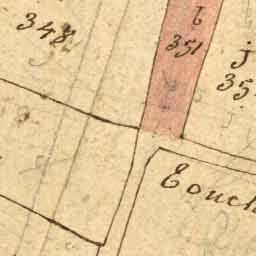 348
b
351
j
35
Couch